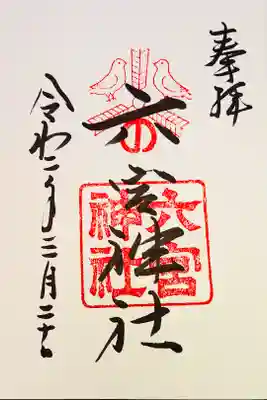 奉拝
六宮神社
六宮
神社
令和二年二月二十日